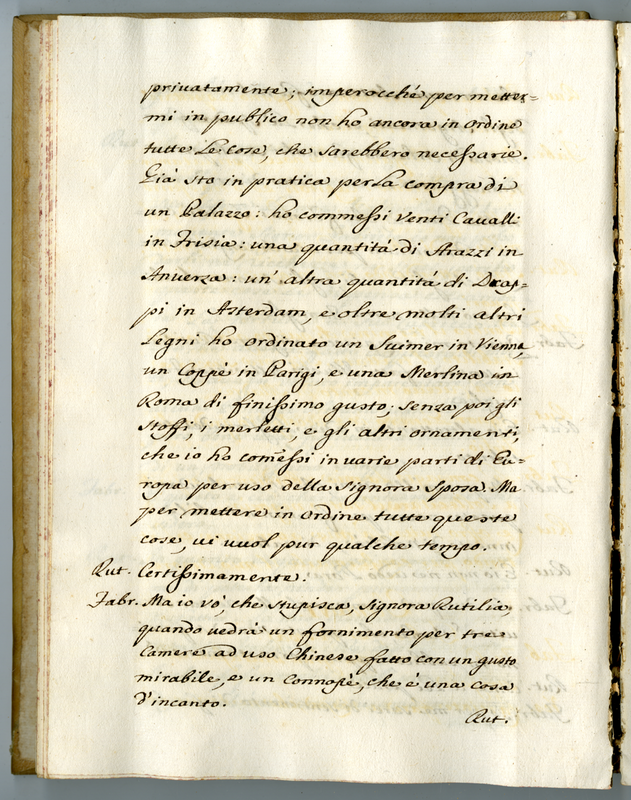 privatamente; imperocché per metter=
mi in publico non ho ancora in ordine
tutte le cose, che sarebbero necessarie.
Già sto in pratica per la compra di
un Palazzo: ho commessi venti Cavalli
in Frisia: una quantitá di Arazzi in
Anversa: un' altra quantitá di Drap-
pi in Asterdam, e oltre molti altri
Legni ho ordinato un Suimer in Vienna,
un Coppè in Parigi, e una Merlina in
Roma di finissimo gusto; senza poi gli
stoffi, i merletti, e gli altri ornamenti,
che io ho com̃essi in varie parti di Eu-
ropa per uso della Signora Sposa. Ma
per mettere in ordine tutte queste
cose, vi vuol pur qualche tempo.
Rut. Certissimamente.
Fabr. Ma io vó, che stupisca, Signora Rutilia,
quando vedrá un fornimento per tre
Camere ad uso Chinese fatto con un gusto
mirabile, e un Connopè, che é una cosa
d'incanto.
Rut.